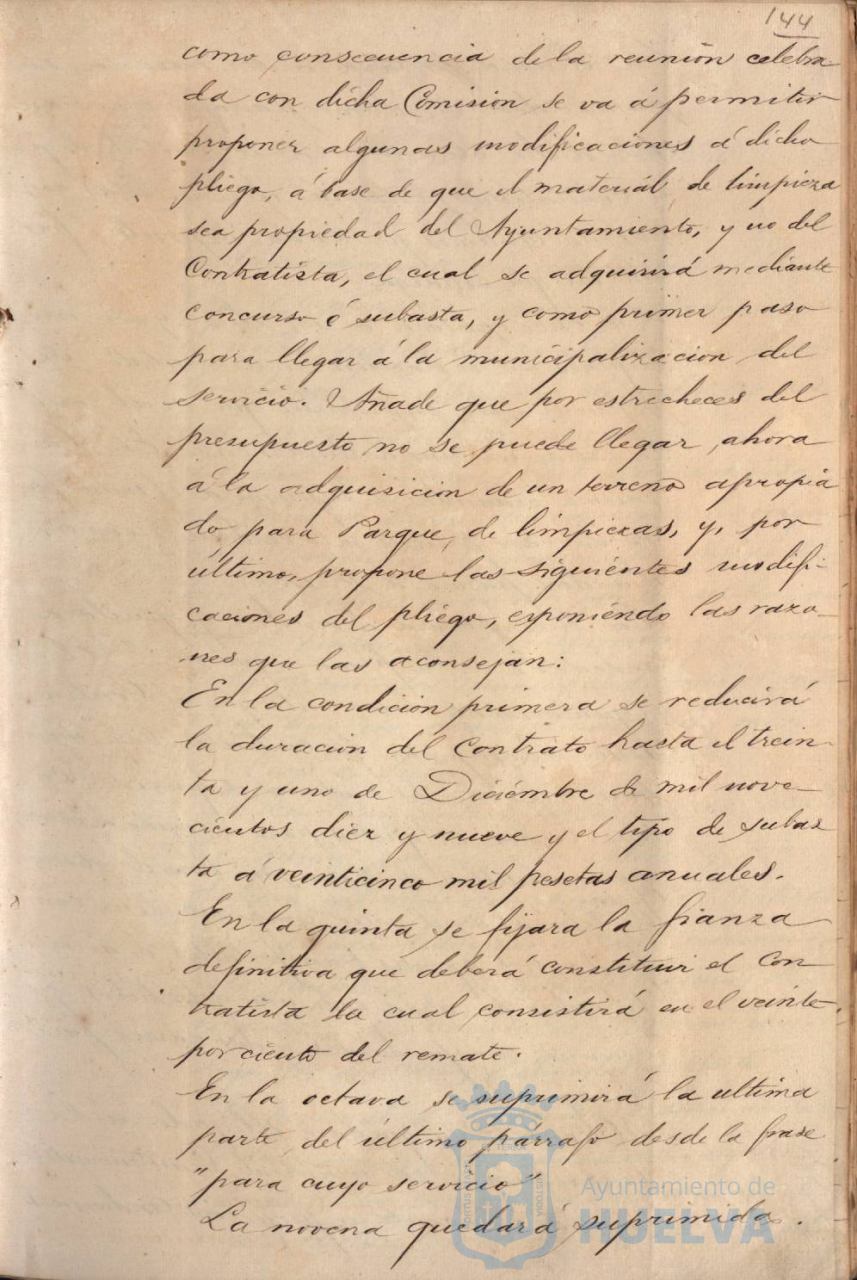 144
como consecuencia de la reunión celebra-
da con dicha Comisión se va á permitir
proponer algunas modificaciones á dicho
pliego, á base de que el material de limpieza
sea propiedad del Ayuntamiento, y no del
Contratista, el cual se adquirirá mediante
concurso ó subasta, y como primer paso
para llegar á la municipalización del
servicio. Añade que por estrecheces del
presupuesto no se puede llegar ahora
á la adquisición de un terreno apropia
do para Parque de limpiezas, y, por
último, propone las siguientes modifi-
caciones del pliego, exponiendo las razo-
nes que las aconsejan:
En la condición primera se reducirá
la duración del Contrato hasta el trein-
ta y uno de Diciembre de mil nove-
cientos diez y nueve y el tipo de subas
ta á veinticinco mil pesetas anuales.
En la quinta se fijara la fianza
definitiva que deberá constituir el Con
tratista la cual consistirá en el veinte
por ciento del remate.
En la octava se suprimirá la ultima
parte del último párrafo desde la frase
"para cuyo servicio"
La novena quedará suprimida.
Ayuntamiento de
HUELVA